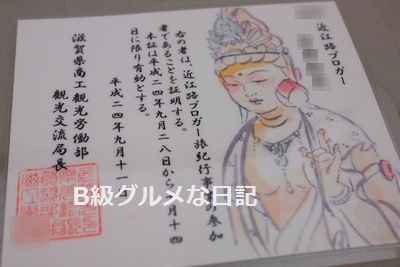 近江路ブロガー
右の者は、近江路ブロガー旅紀行事業の参加
者であることを証明する。
本証は平成二四年九月二八日から 月十四
日に限り有効とする。
平成二四年九月十一日
滋賀県商工観光労働部
観光交流局長
B級グルメな日記